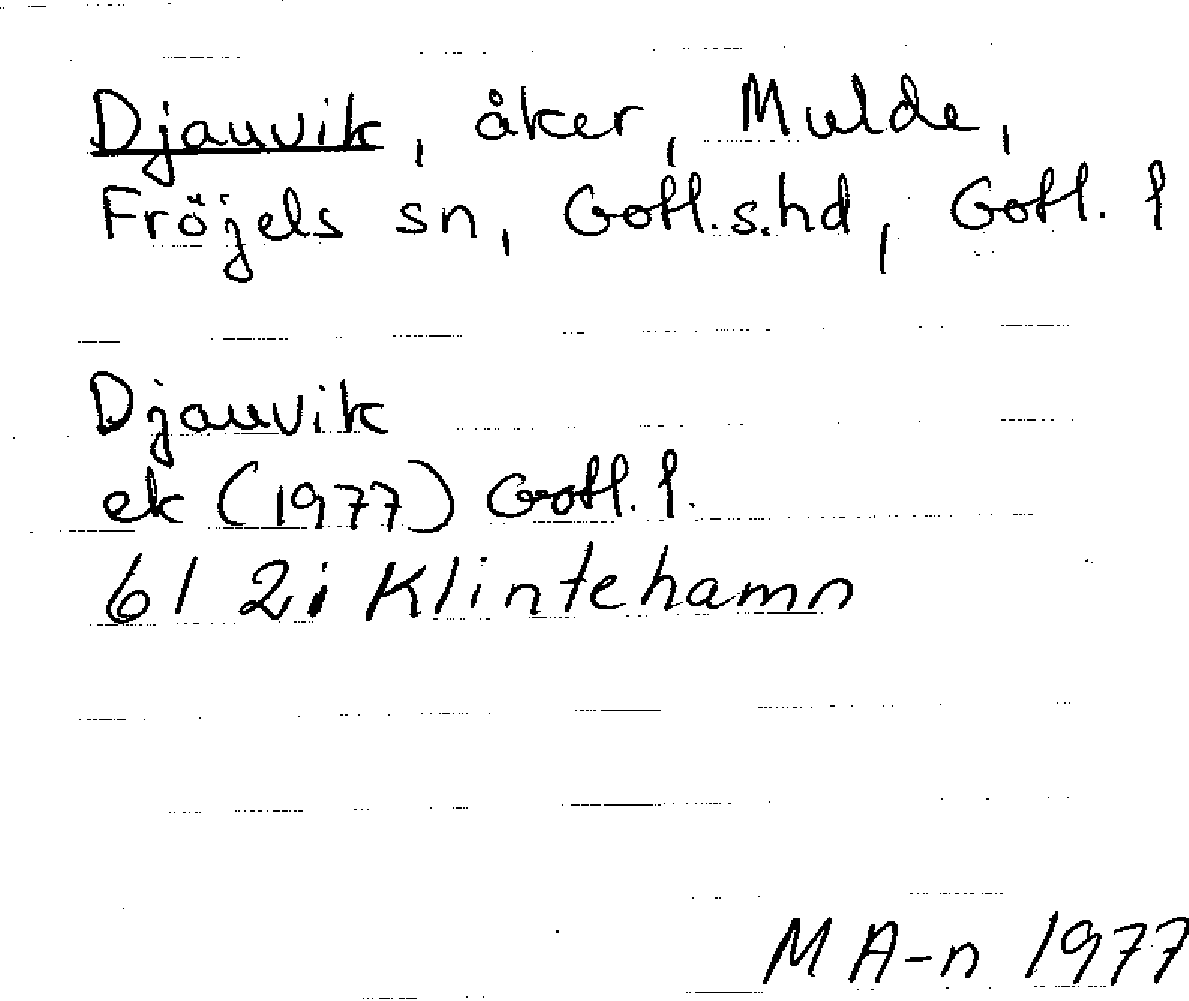 Djauvik, åker, Mulde,
Fröjels sn, Gotl.s.hd, Gotl. l
Djauvik
ek (1977) Gotl. l.
6I 2i Klintehamn
M A-n 1977